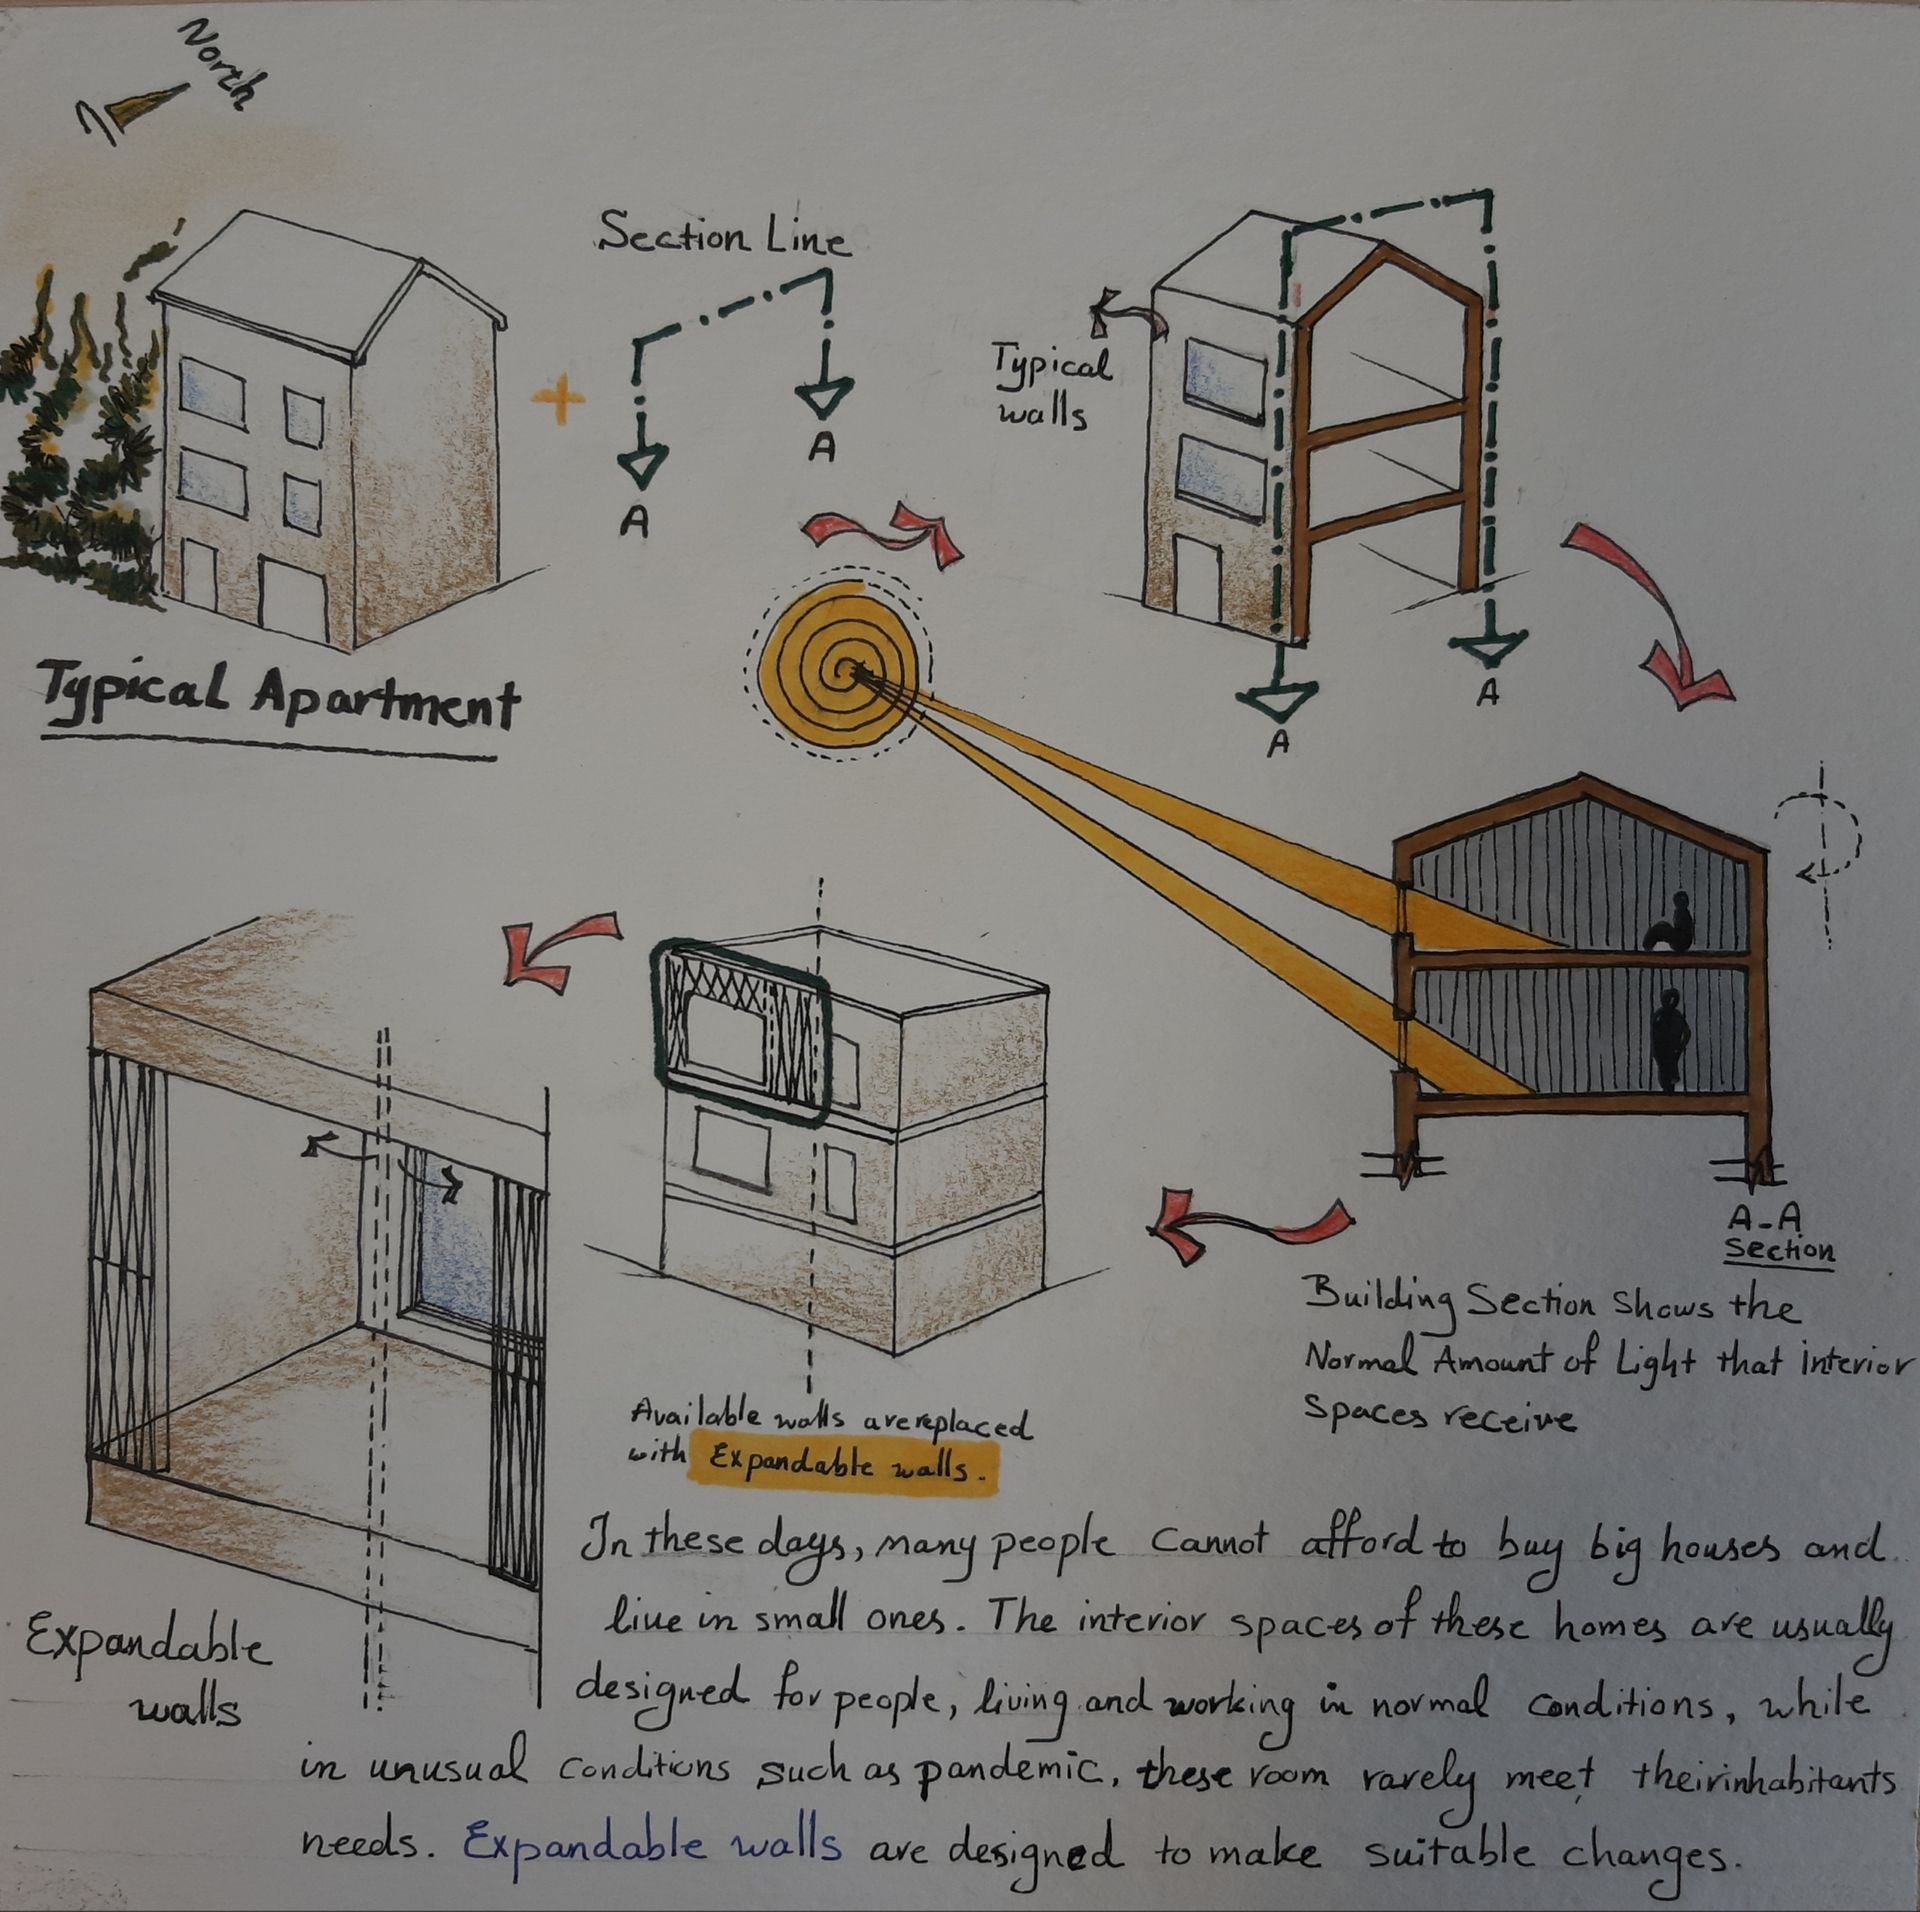 North
Section Line
A
A
Typical
walls
A
A
Typical Apartment
A-A
Section
Building Section Shows the
Normal Amount of Light that interior
Spaces receive
Available walls are replaced
with Expandable walls.
Expandable
walls
In these days, many people cannot afford to buy big houses and
live in small ones. The interior spaces of these homes are usually
designed for people, living and working in normal conditions, while
in unusual conditions such as pandemic, these room rarely meet their inhabitants
needs. Expandable walls are designed to make suitable changes.